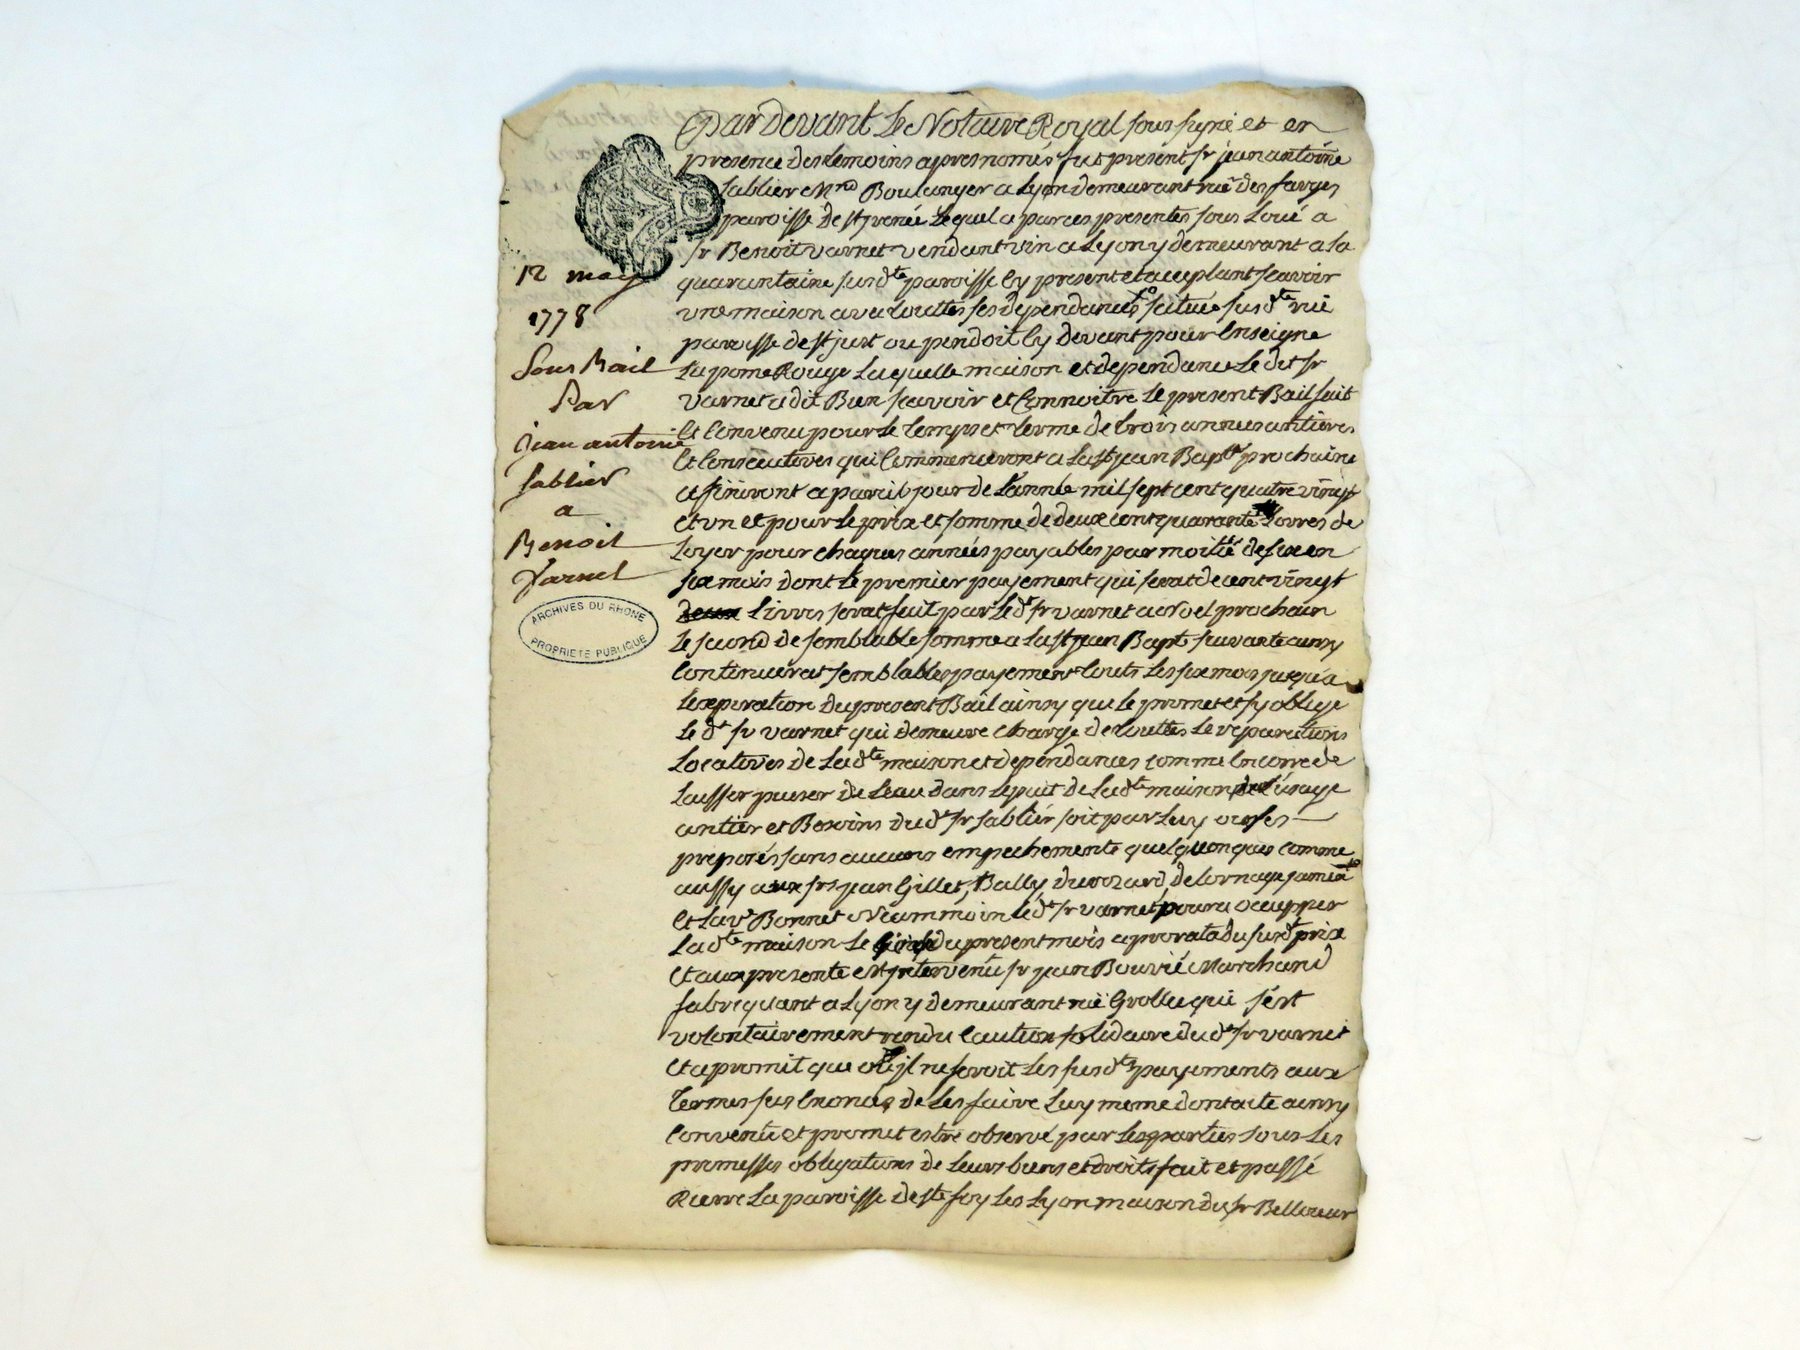 12 may
1778
Sous Bail
Par
jean antoine
sablier
a
Benoit
Varnet
ARCHIVES DU RHONE
PROPRIETE PUBLIQUE
Par Devant Le Notaire Royal sous signé et en
presence des temoins apres només fut present sr jean antoine
sablier Mrd Boulanger a Lyon demeurant rüe des farges
paroisse de st irenée Lequel a par ces presentes sous Loué a
sr Benoit varnet vendant vin a Lyon y demeurant a la
quarantaine susdte paroisse Cy present et aceptant scavoir
vne maison avec touttes ses dependances scituée susdte rüe
paroisse de st just ou pendoit Cy devant pour Enseigne
La pome Rouge Laquelle maison et dependance Le dit sr
varnet a dit Bien scavoir et Connoitre Le present Bail fait
Et Convenu pour Le temps et terme de trois années antieres
Et Consecutives qui Commenceront a La st jean Bapte prochaine
et finiront a pareil jour de L'année mil sept cent quatre vingt
et vn et pour Le prix et somme de deux cent quarante Livres de
Loyer pour chaques années payables par moitié de six en
six mois dont Le premier payement qui serat de cent vingt
Livres serat fait par Le dt sr varnet a noel prochain
Le second de semblable somme a La st jean Bapte suivante ainsy
Continuerat semblables payement touts Les six mois jusqu'a
Lexpiration du present Bail ainsy que Le promet et sy oblige
Le dt sr varnet qui demeure charge de touttes Le reparations
Locatives de Ladte maison et dependances comme Encorre de
Laisser puiser de Leau dans Le puit de Ladte maison L'usage
antier et Besoins du dt sr sablier soit par Luy ou ses
preposés sans aucuns empechements quelquonques comme
aussy aux srs jean Gillet, Bally, Duvozard, Delornage
Et La ve Bonnet Neammoin Le dt sr varnet poura occupper
Ladte maison Le du present mois a prorata du susdt prix
Et aux presente est intervenu sr jean Bouvié Marchand
fabriquant a Lyon y demeurant rüe Grollee qui s'est
volontairement rendu Caution solidaire du dt sr varnet
et a promit que ou il ne feroit Les susdts payements aux
termes sus Enoncés de Les faire Luy meme dont acte ainsy
Convenu et promit estre observé par Les parties sous Les
promesses obligations de Leurs biens et droits fait et passé
Rierre La paroisse de ste foy Les Lyon maison du sr Bellcoeur